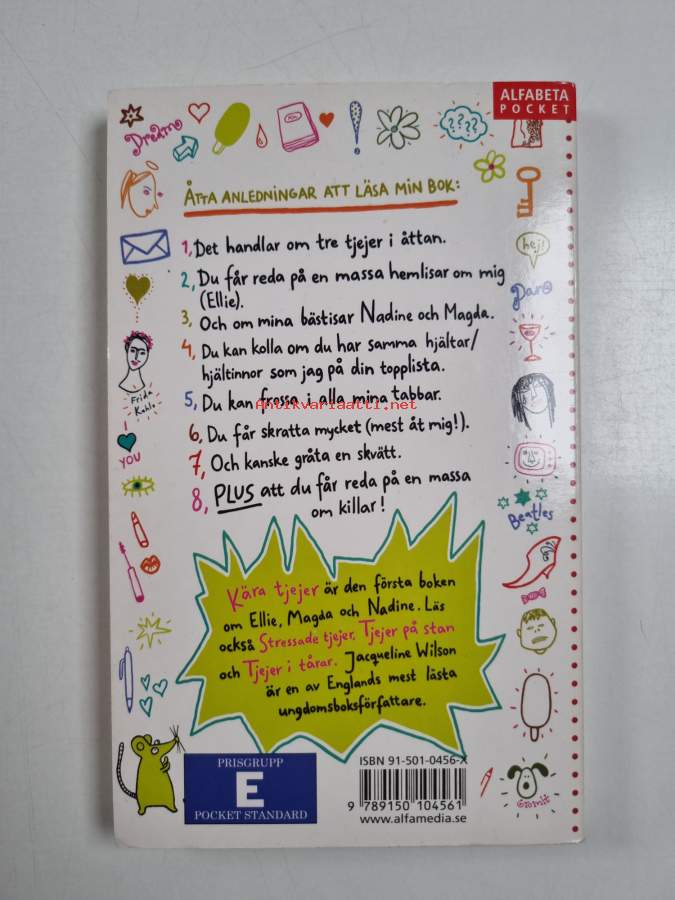 ALFABETA
POCKET
Dreams
????
ÅTTA ANLEDNINGAR ATT LÄSA MIN BOK:
1, Det handlar om tre tjejer i åttan.
hej!
2, Du får reda på en massa hemlisar om mig
(Ellie).
3, Och om mina bästisar Nadine och Magda.
4, Du kan kolla om du har samma hjältar/
hjältinnor som jag på din topplista.
Frida
Kahlo
5, Du kan frossa i alla mina tabbar.
Antikvariaatti.net
6, Du får skratta mycket (mest åt mig!).
I
YOU
7, Och kanske gråta en skvätt.
8, PLUS att du får reda på en massa
om killar!
Beatles
Kära tjejer är den första boken
om Ellie, Magda och Nadine. Läs
också Stressade tjejer, Tjejer på stan
och Tjejer i tårar. Jacqueline Wilson
är en av Englands mest lästa
ungdomsboksförfattare.
PRISGRUPP
E
POCKET STANDARD
ISBN 91-501-0456-X
9 789150 104561
www.alfamedia.se
Gromit